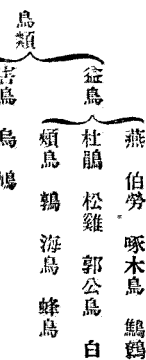 鳥類
益鳥
燕 伯勞 啄木鳥
杜鵑 松雞 郭公鳥 白
頰鳥 海鳥 蜂鳥
害鳥 烏 鳩